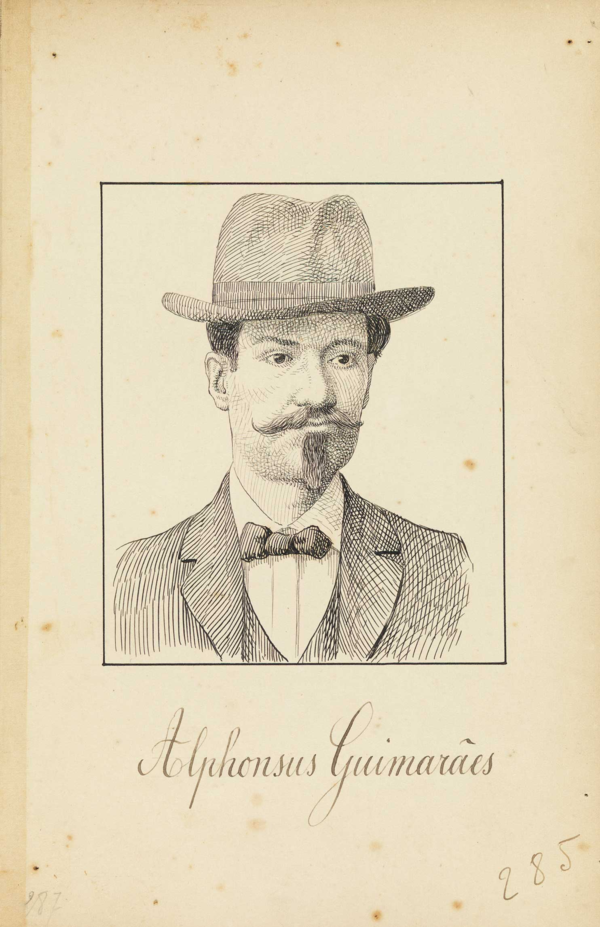 Alphonsus Guimarães
285